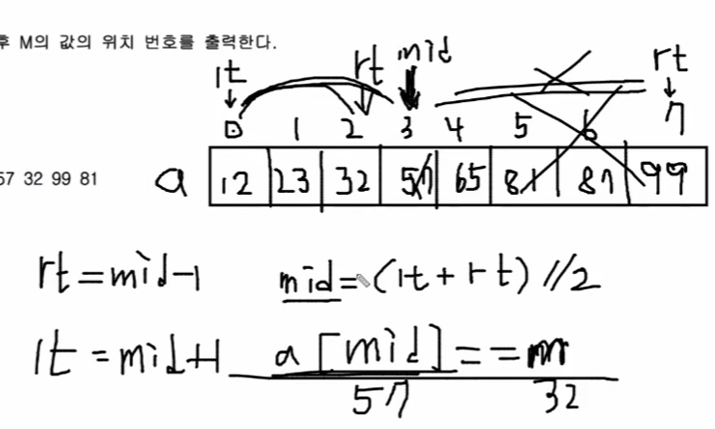 후 M의 값의 위치 번호를 출력한다.
lt rt mid rt
0 1 2 3 4 5 6 7
57 32 99 81
a 12 23 32 57 65 81 87 99
rt=mid-1 mid=(lt+rt)//2
lt=mid+1 a[mid]==m
57 32